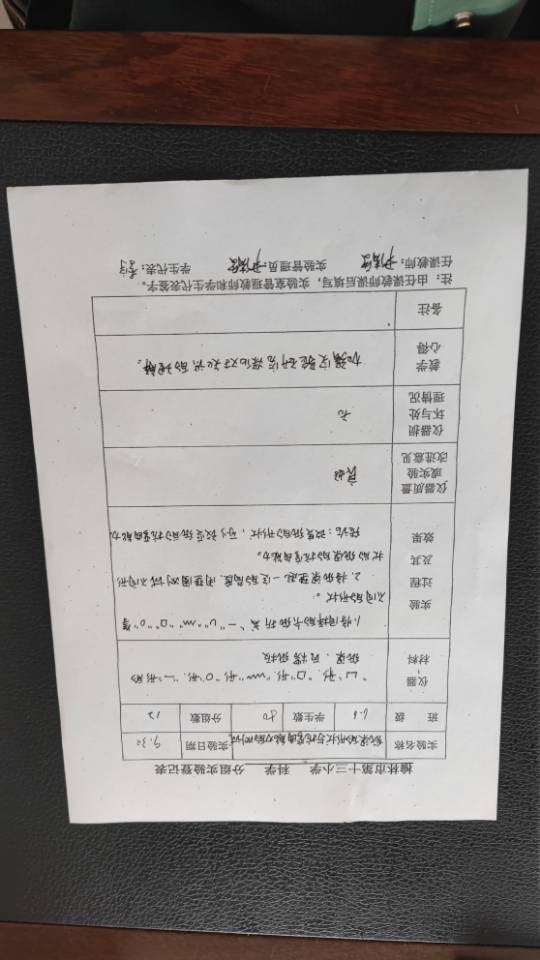 榆林市第十三小学 科学 分组实验登记表
实验名称 纸梁的形状与抗弯曲能力的测试 实验日期 9.30
班 级 6.6 学生数 50 分组数 12
仪器、材料 "凵"形."口"形."~~"形."O"形."一"形的
纸梁、瓦楞纸板
实验过程及其效果 1.将同样的卡纸折成"一""U""m""口""O"等
不同的形状。
2.将纸梁垫起一定的高度,用垫圈测试不同形
状的纸梁的抗弯曲能力。
结论:改变纸的形状,可以改变纸的抗弯曲能力
仪器质量或实验改进意见 良好
仪器损坏与处理情况 无
教学心得 加强实验研后深化对知识的理解。
备注
注:由任课教师教课后填写,实验室管理教师和学生代表签字。
任课教师: 实验管理员: 学生代表: